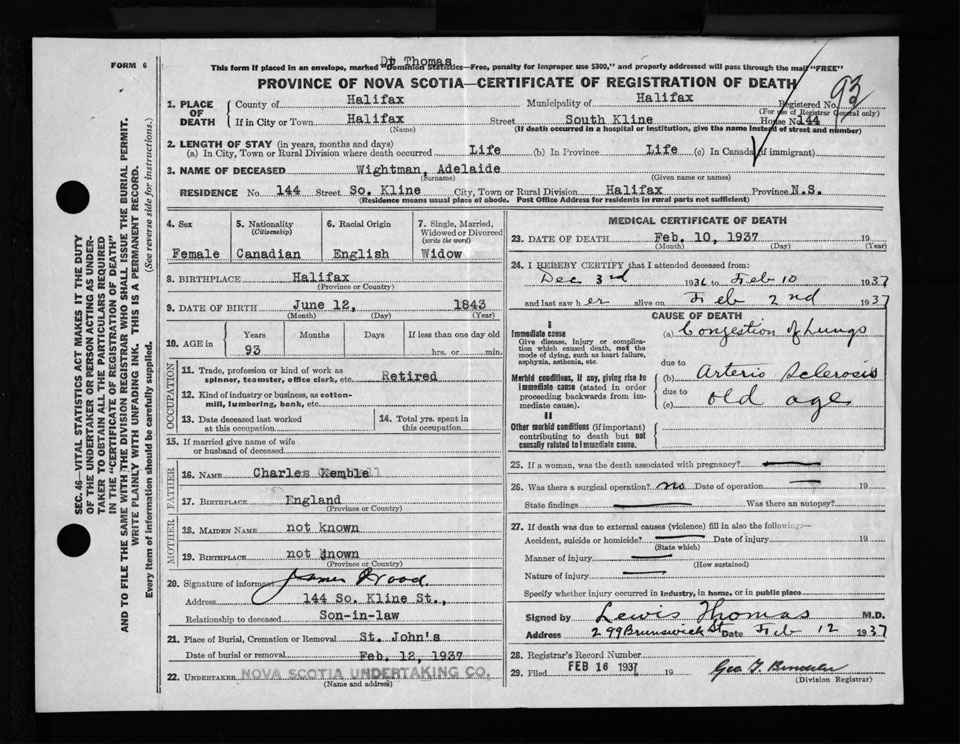 FORM 6
Dr Thomas
This form if placed in an envelope, marked "Dominion Statistics—Free, penalty for improper use $300," and properly addressed will pass through the mail "FREE"
PROVINCE OF NOVA SCOTIA—CERTIFICATE OF REGISTRATION OF DEATH
93
1. PLACE OF DEATH
County of Halifax Municipality of Halifax Registered No.
(For use of Registrar General only)
If in City or Town Halifax Street South Kline House No. 144
(Name) (If death occurred in a hospital or institution, give the name instead of street and number)
2. LENGTH OF STAY (in years, months and days)
(a) In City, Town or Rural Division where death occurred Life (b) In Province Life (c) In Canada (if immigrant)
3. NAME OF DECEASED Wightman, Adelaide
(Surname) (Given name or names)
RESIDENCE No. 144 Street So. Kline City, Town or Rural Division Halifax Province N.S.
(Residence means usual place of abode. Post Office Address for residents in rural parts not sufficient)
SEC. 46—VITAL STATISTICS ACT MAKES IT THE DUTY
OF THE UNDERTAKER OR PERSON ACTING AS UNDER-
TAKER TO OBTAIN ALL THE PARTICULARS REQUIRED
IN THE "CERTIFICATE OF REGISTRATION OF DEATH"
AND TO FILE THE SAME WITH THE DIVISION REGISTRAR WHO SHALL ISSUE THE BURIAL PERMIT.
WRITE PLAINLY WITH UNFADING INK. THIS IS A PERMANENT RECORD.
Every item of information should be carefully supplied. (See reverse side for instructions.)
4. Sex
Female
5. Nationality
(Citizenship)
Canadian
6. Racial Origin
English
7. Single, Married,
Widowed or Divorced
(write the word)
Widow
8. BIRTHPLACE Halifax
(Province or Country)
9. DATE OF BIRTH June 12, 1843
(Month) (Day) (Year)
10. AGE in
Years Months Days If less than one day old
93 hrs. or min.
OCCUPATION
11. Trade, profession or kind of work as
spinner, teamster, office clerk, etc. Retired
12. Kind of industry or business, as cotton-
mill, lumbering, bank, etc.
13. Date deceased last worked
at this occupation
14. Total yrs. spent in
this occupation
15. If married give name of wife
or husband of deceased
FATHER
16. NAME Charles Kemble
17. BIRTHPLACE England
(Province or Country)
MOTHER
18. MAIDEN NAME not known
19. BIRTHPLACE not known
(Province or Country)
20. Signature of informant James Wood
Address 144 So. Kline St.,
Relationship to deceased Son-in-law
21. Place of Burial, Cremation or Removal St. John's
Date of burial or removal Feb. 12, 1937
22. UNDERTAKER NOVA SCOTIA UNDERTAKING CO.
(Name and address)
MEDICAL CERTIFICATE OF DEATH
23. DATE OF DEATH Feb. 10, 1937 19
(Month) (Day) (Year)
24. I HEREBY CERTIFY that I attended deceased from:
Dec 3rd 1936 to Feb 10 1937
and last saw her alive on Feb 2nd 1937
CAUSE OF DEATH
I
Immediate cause
Give disease, injury or complica-
tion which caused death, not the
mode of dying, such as heart failure,
asphyxia, asthenia, etc.
(a) Congestion of Lungs
due to
Morbid conditions, if any, giving rise to
immediate cause (stated in order
proceeding backwards from im-
mediate cause).
(b) Arterio Sclerosis
due to
(c) old age
II
Other morbid conditions (if important)
contributing to death but not
causally related to immediate cause.
25. If a woman, was the death associated with pregnancy?
26. Was there a surgical operation? no Date of operation 19
State findings Was there an autopsy?
27. If death was due to external causes (violence) fill in also the following:—
Accident, suicide or homicide? Date of injury 19
(State which)
Manner of injury
(How sustained)
Nature of injury
Specify whether injury occurred in industry, in home, or in public place
Signed by Lewis Thomas M.D.
Address 299 Brunswick St Date Feb 12 1937
28. Registrar's Record Number
29. Filed FEB 16 1937 19
(Division Registrar)